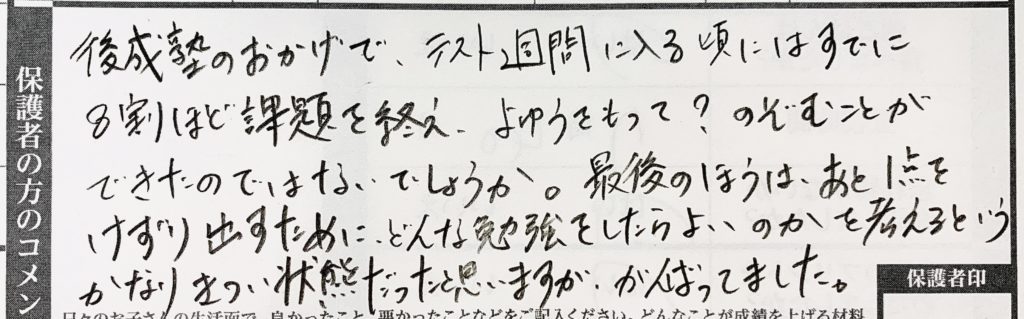 保護者の方のコメン
後成塾のおかげで、テスト週間に入る頃にはすでに
8割ほど課題を終え、よゆうをもって?のぞむことが
できたのではないでしょうか。最後のほうは、あと1点を
けずり出すために、どんな勉強をしたらよいのかを考えるという
かなりきつい状態だったと思いますが、がんばってました。
保護者印
日々のお子さんの生活面で、良かったこと、悪かったことなどをご記入ください。どんなことが成績を上げる材料